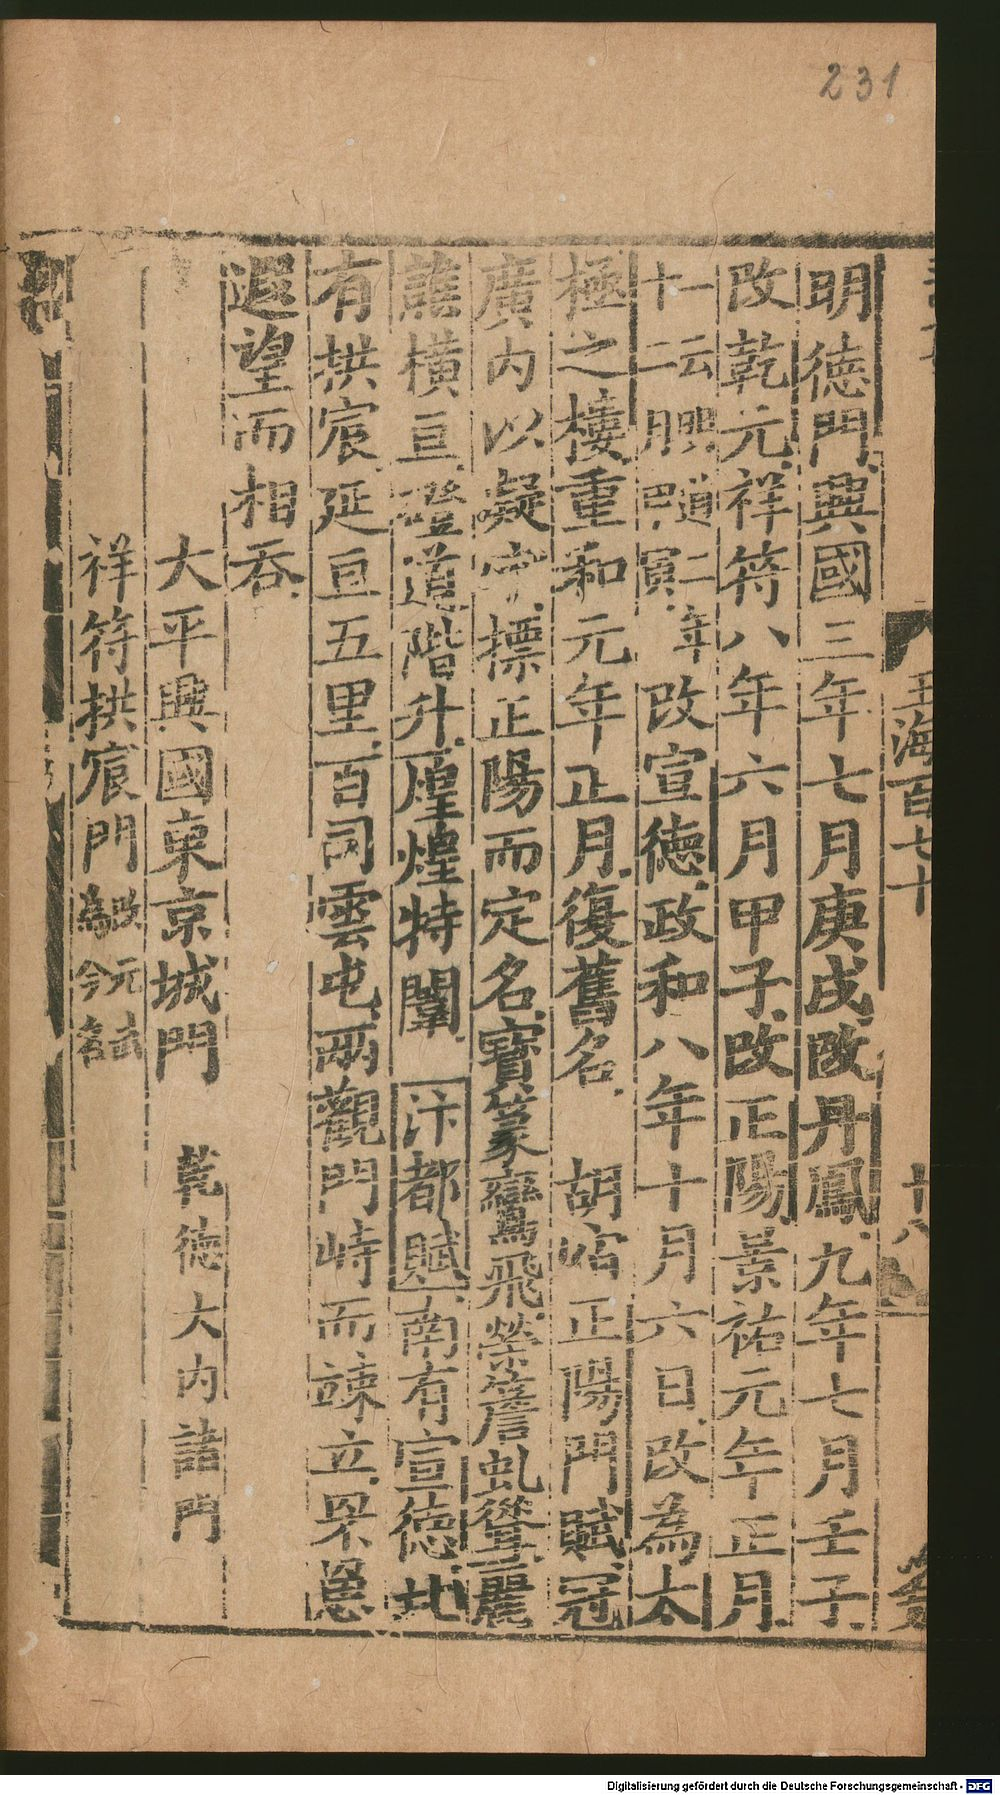 231
玉海百七十
十八
明德門興國三年七月庚戌改丹鳳九年七月壬子
改乾元祥符八年六月甲子改正陽景祐元年正月
十一云 二月 明道二年改宣德政和八年十月六日改為太
極之樓重和元年正月復舊名 胡宿正陽門賦冠
廣内以凝 標正陽而定名寶篆鸞飛榮簷虬聳麗
譙橫亘磴道階升煌煌特闈 汴都賦南有宣德北
有拱宸延亘五里百司雲屯兩觀門峙而竦立罘罳
遐望而相吞
大平興國東京城門 乾德大内諸門
祥符拱宸門 元武 今名
Digitalisierung gefördert durch die Deutsche Forschungsgemeinschaft - DFG